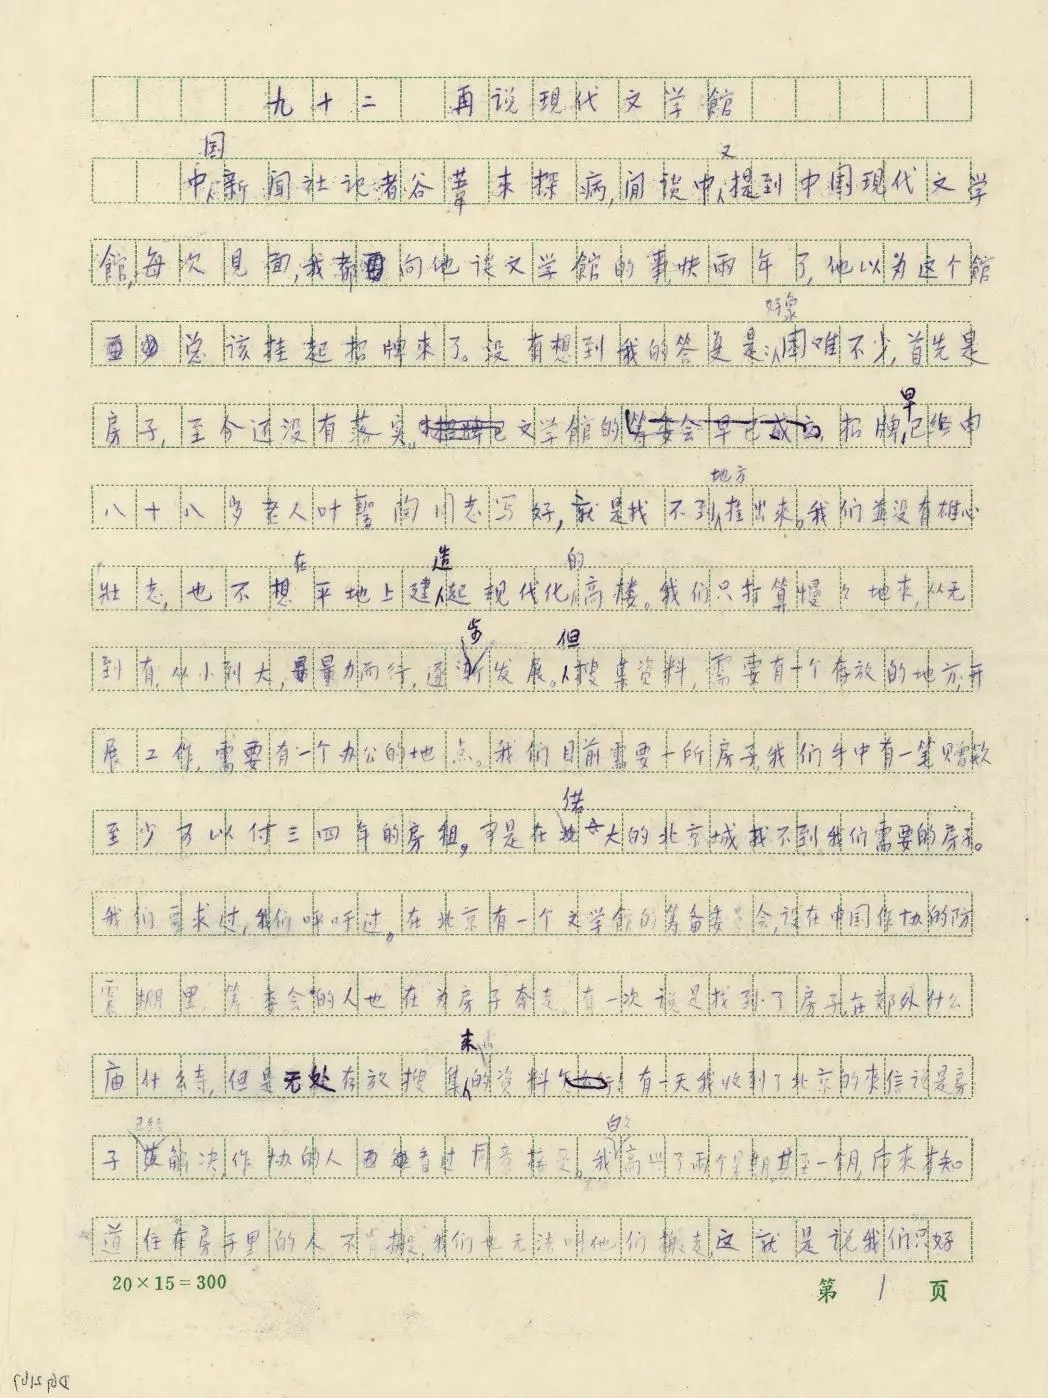 九十二 再说现代文学館
中国新闻社记者谷苇来探病,闲谈中又提到中国现代文学
館,每次见面,我都向他谈文学館的事,快两年了,他以为这个館
总该挂起招牌来了。没有想到我的答复是:好象困难不少,首先是
房子,至今还没有落实。文学館的招牌早已经由
八十八岁老人叶聖陶同志写好,就是找不到地方挂出来。我们並没有雄心
壮志,也不想在平地上建造起现代化的高楼。我们只打算慢慢地来,从无
到有,从小到大,量力而行,逐步发展。但搜集资料,需要有一个存放的地方,开
展工作,需要有一个办公的地点。我们目前需要一所房子,我们手中有一笔赠款
至少可以付三四年的房租。可是在偌大的北京城找不到我们需要的房子。
我们要求过,我们呼吁过。在北京有一个文学館的筹备委员会,设在中国作协的防
震棚里,筹委会的人也在为房子奔走。有一次说是找到了房子,在郊外什么
庙什么寺,但是无处存放搜集来的资料!有一天我收到了北京的来信说是房
子已经解决,作协的人看过同意接受。我白白高兴了两个星期,甚至一个月,后来才知
道住在房子里的人不肯搬,我们也无法叫他们搬走,这就是说我们只好
20×15=300
第 1 页